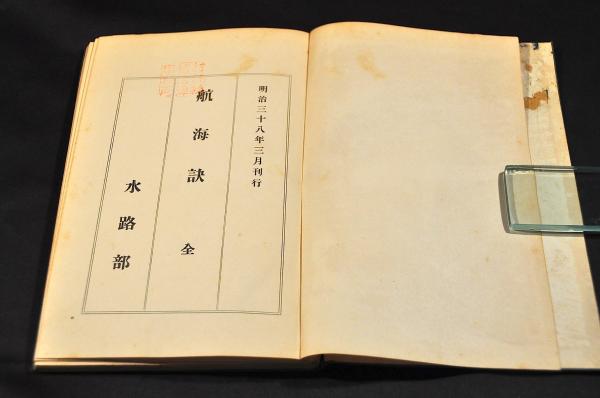 明治三十八年三月刊行
航海訣 全
水路部